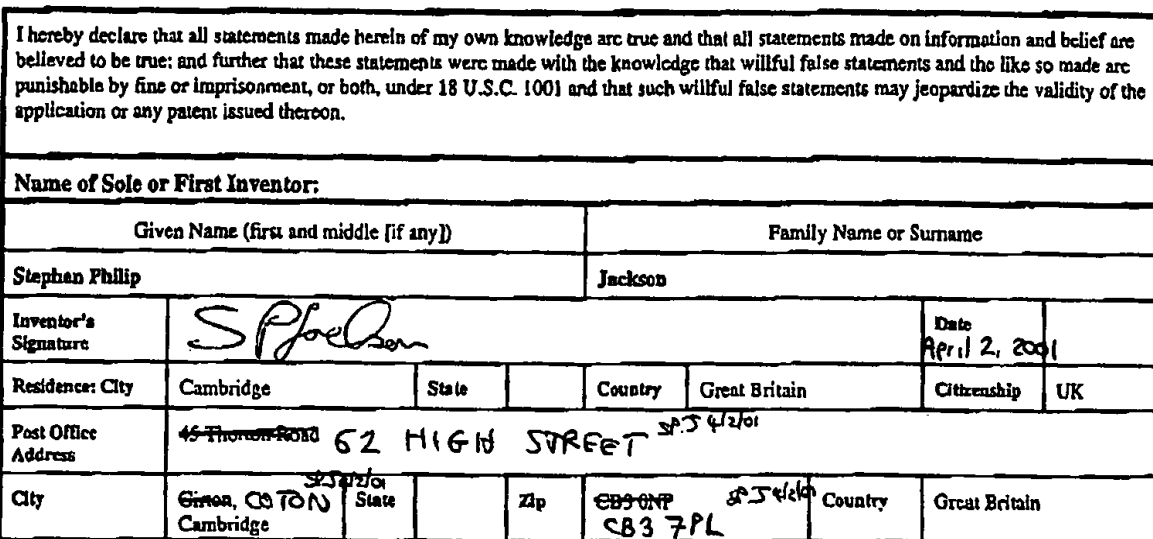 I hereby declare that all statements made herein of my own knowledge are true and that all statements made on information and belief are
believed to be true; and further that these statements were made with the knowledge that willful false statements and the like so made are
punishable by fine or imprisonment, or both, under 18 U.S.C. 1001 and that such willful false statements may jeopardize the validity of the
application or any patent issued thereon.
Name of Sole or First Inventor:
Given Name (first and middle [if any]) Family Name or Surname
Stephen Philip Jackson
Inventor's Signature SPJackson Date April 2, 2001
Residence: City Cambridge State Country Great Britain Citizenship UK
Post Office Address 45 Thornton Road 62 HIGH STREET SP.J 4/2/01
City Girton, COTON SPJ 4/2/01 State Zip CB3 0NP SP J 4/2/01 Country Great Britain
Cambridge CB3 7PL